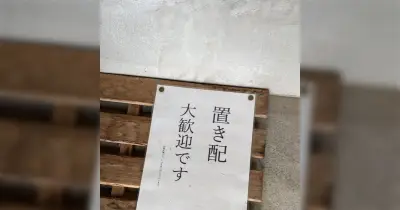 置き配
大歓迎です